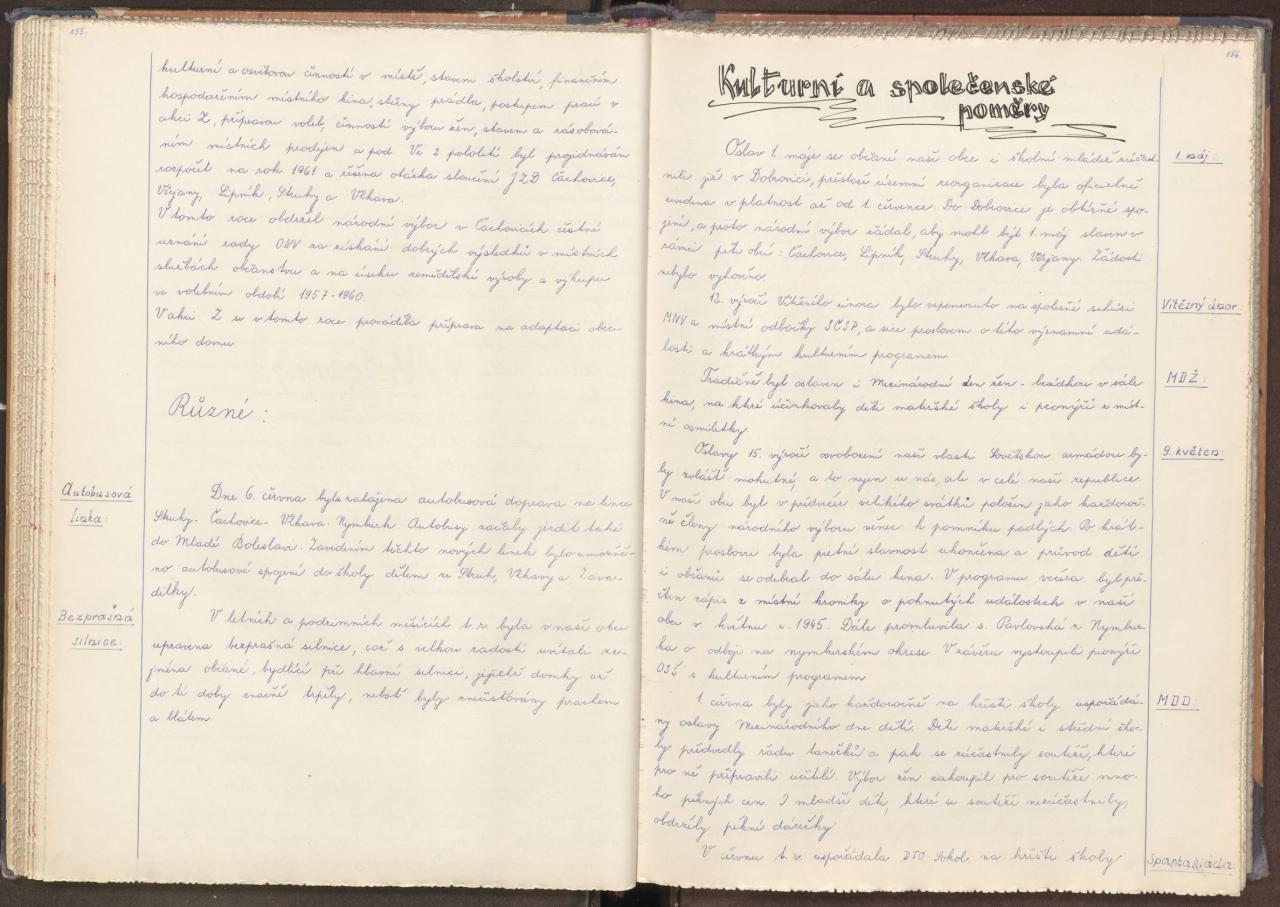 155.
kulturní a osvětovou činností v místě, stavem školství, finančním
hospodařením místního kina, sběrny prádla, postupem prací v
akci Z, přípravou voleb, činností výboru žen, stavem a zásobová-
ním místních prodejen a pod. Ve 2. pololetí byl projednáván
rozpočet na rok 1961 a řešena otázka sloučení JZD Čachovice,
Všejany, Lipník, Struhy a Vlkava.
V tomto roce obdržel národní výbor v Čachovicích čestné
uznání rady ONV za získání dobrých výsledků v místních
službách občanstvu a na úseku zemědělské výroby a výkupu
ve volebním období 1957-1960.
V akci Z se v tomto roce prováděla příprava na adaptaci obec-
ního domu.
Různé:
Autobusová
linka:
Dne 6. června byla zahájena autobusová doprava na lince
Struhy - Čachovice - Vlkava - Nymburk. Autobusy začaly jezdit také
do Mladé Boleslavi. Zavedením těchto nových linek bylo umožně-
no autobusové spojení do školy dětem ze Struh, Vlkavy a Zava-
dilky.
Bezprašná
silnice:
V letních a podzimních měsících t. r. byla v naší obci
upravena bezprašná silnice, což s velkou radostí uvítali ze-
jména občané, bydlící při hlavní silnici, jejichž domky až
do té doby značně trpěly, neboť byly znečišťovány prachem
a blátem.
156.
Kulturní a společenské
poměry
1. máj:
Oslav 1. máje se občané naší obce i školní mládeže zúčast-
nili již v Dobrovici, přestože územní reorganisace byla oficielně
uvedena v platnost až od 1. července. Do Dobrovice je obtížné spo-
jení, a proto národní výbor žádal, aby mohl být 1. máj slaven v
rámci pěti obcí: Čachovice, Lipník, Struhy, Vlkava, Všejany. Žádosti
nebylo vyhověno.
Vítězný únor:
12. výročí Vítězného února bylo vzpomenuto na společné schůzi
MNV a místní odbočky SČSP, a sice proslovem o této významné udá-
losti a krátkým kulturním programem.
MDŽ:
Tradičně byl oslaven i Mezinárodní den žen - besídkou v sále
kina, na které účinkovaly děti mateřské školy i pionýři z míst-
ní osmiletky.
9. květen:
Oslavy 15. výročí osvobození naší vlasti Sovětskou armádou by-
ly zvláště mohutné, a to nejen u nás, ale v celé naší republice.
V naší obci byl v předvečer velikého svátku položen jako každoroč-
ně členy národního výboru věnec k pomníku padlých. Po krát-
kém proslovu byla pietní slavnost ukončena a průvod dětí
i občanů se odebral do sálu kina. V programu večera byl pře-
čten zápis z místní kroniky o pohnutých událostech v naší
obci v květnu r. 1945. Dále promluvila s. Pavlovská z Nymbur-
ka o odboji na nymburském okrese. V závěru vystoupili pionýři
OSŠ s kulturním programem.
MDD:
1. června byly jako každoročně na hřišti školy uspořádá-
ny oslavy Mezinárodního dne dětí. Děti mateřské i střední ško-
ly předvedly řadu tanečků a pak se zúčastnily soutěží, které
pro ně připravili učitelé. Výbor žen zakoupil pro soutěže mno-
ho pěkných cen. I mladší děti, které se soutěží nezúčastnily,
obdržely pěkné dárečky.
Spartakiáda:
V červnu t. r. uspořádala DTO Sokol na hřišti školy